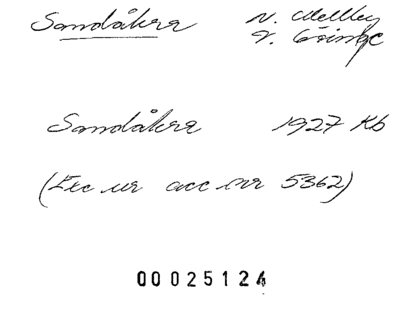 Sandåkra N. Mellby
V. Göinge
Sandåkra 1927 Kb
(Exc ur acc nr 5362)
00025124